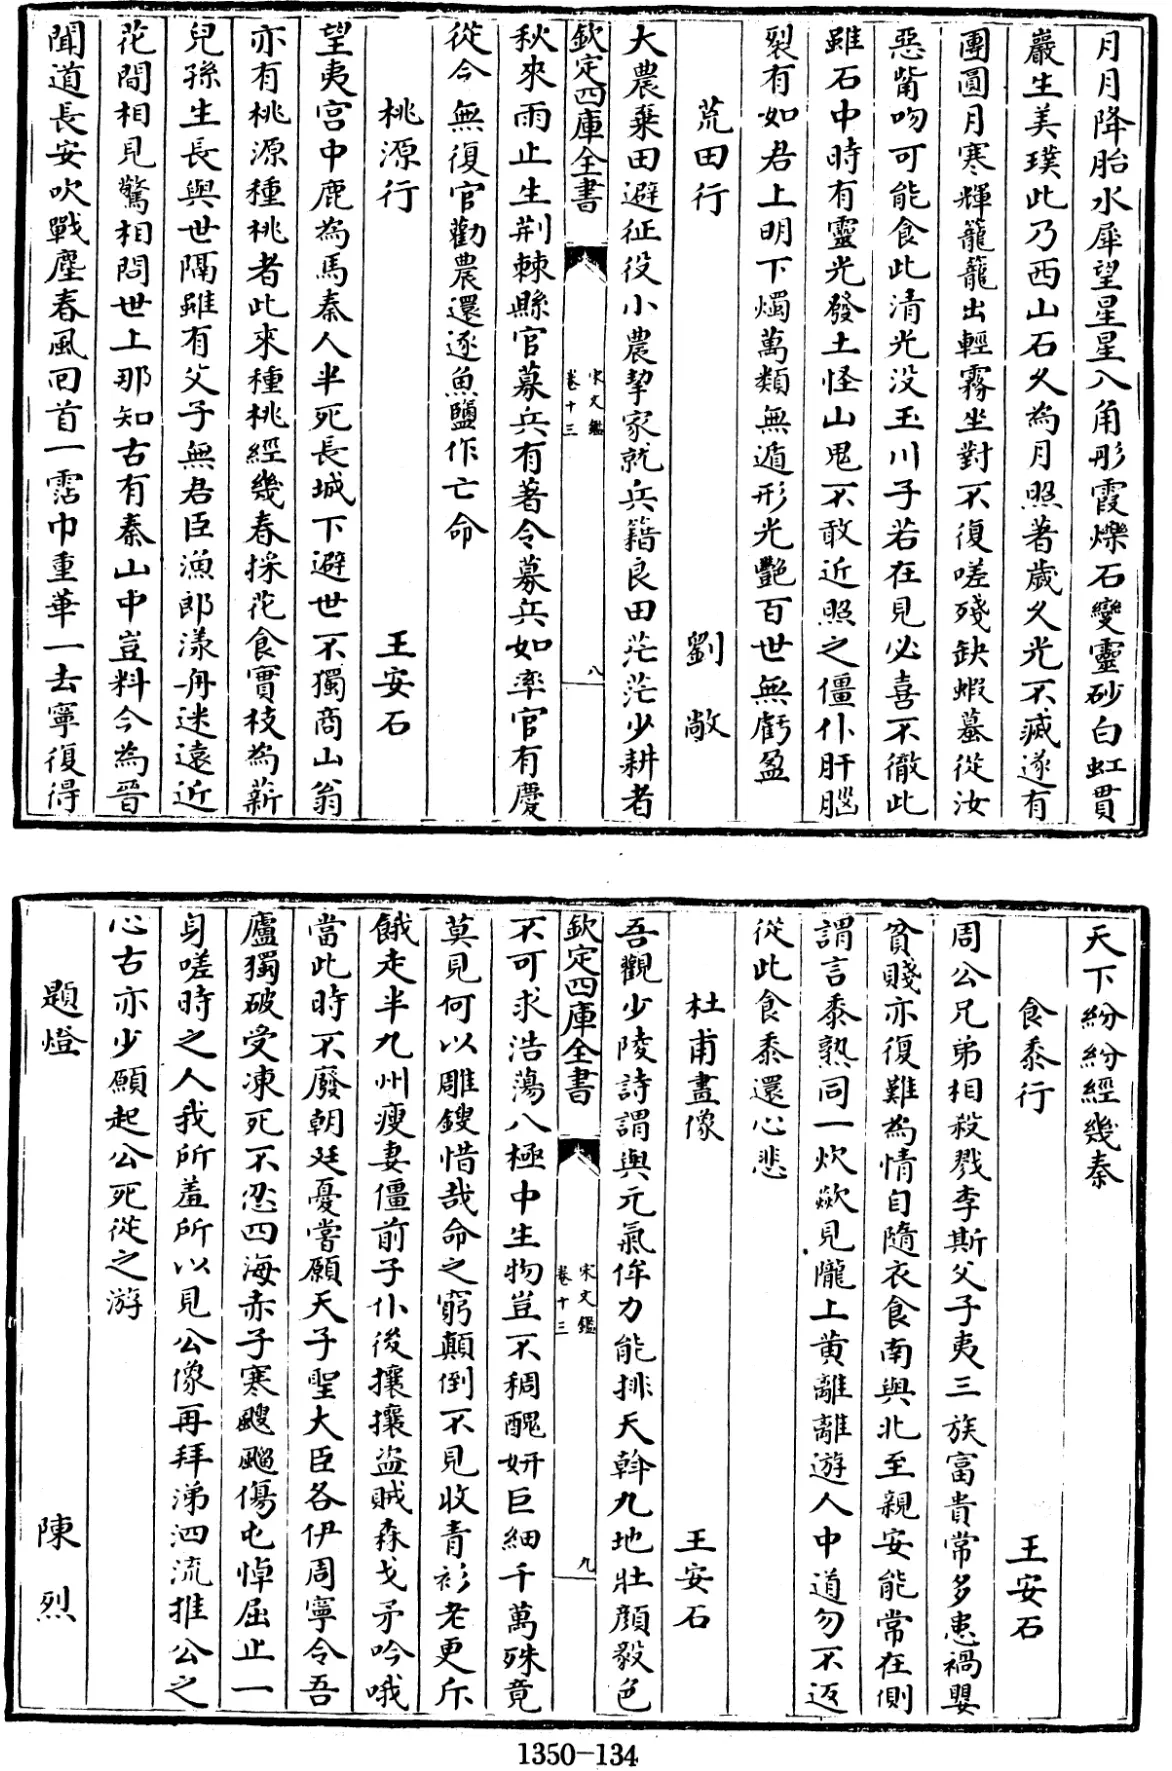 月月降胎水犀望星星入角彤霞爍石變靈砂白虹貫
巖生美璞此乃西山石久為月照著歲久光不滅遂有
團圓月寒輝籠籠出輕霧坐對不復嗟殘缺蝦蟇從汝
惡觜吻可能食此清光没玉川子若在見必喜不徹此
雖石中時有靈光發土怪山鬼不敢近照之僵仆肝腦
裂有如君上明下燭萬類無遁形光艷百世無虧盈
荒田行 劉敞
大農棄田避征役小農挈家就兵籍良田茫茫少耕者
欽定四庫全書 宋文鑑 卷十三 八
秋來雨止生荆棘縣官募兵有著令募兵如率官有慶
從今無復官勸農還逐魚鹽作亡命
桃源行 王安石
望夷宫中鹿為馬秦人半死長城下避世不獨商山翁
亦有桃源種桃者此來種桃經幾春採花食實枝為薪
兒孫生長與世隔雖有父子無君臣漁郎漾舟迷遠近
花間相見驚相問世上那知古有秦山中豈料今為晉
聞道長安吹戰塵春風回首一霑巾重華一去寧復得
天下紛紛經幾秦
食黍行 王安石
周公兄弟相殺戮李斯父子夷三族富貴常多患禍嬰
貧賤亦復難為情自隨衣食南與北至親安能常在側
謂言黍熟同一炊歘見隴上黄離離遊人中道勿不返
從此食黍還心悲
杜甫畫像 王安石
吾觀少陵詩謂與元氣侔力能排天斡九地壯顔毅色
欽定四庫全書 宋文鑑 卷十三 九
不可求浩蕩八極中生物豈不稠醜妍巨細千萬殊竟
莫見何以雕鎪惜哉命之窮顛倒不見收青衫老更斥
餓走半九州瘦妻僵前子仆後攘攘盜賊森戈矛吟哦
當此時不廢朝廷憂嘗願天子聖大臣各伊周寧令吾
廬獨破受凍死不忍四海赤子寒颼飀傷屯悼屈止一
身嗟時之人我所羞所以見公像再拜涕泗流推公之
心古亦少願起公死從之游
題燈 陳烈
1350-134